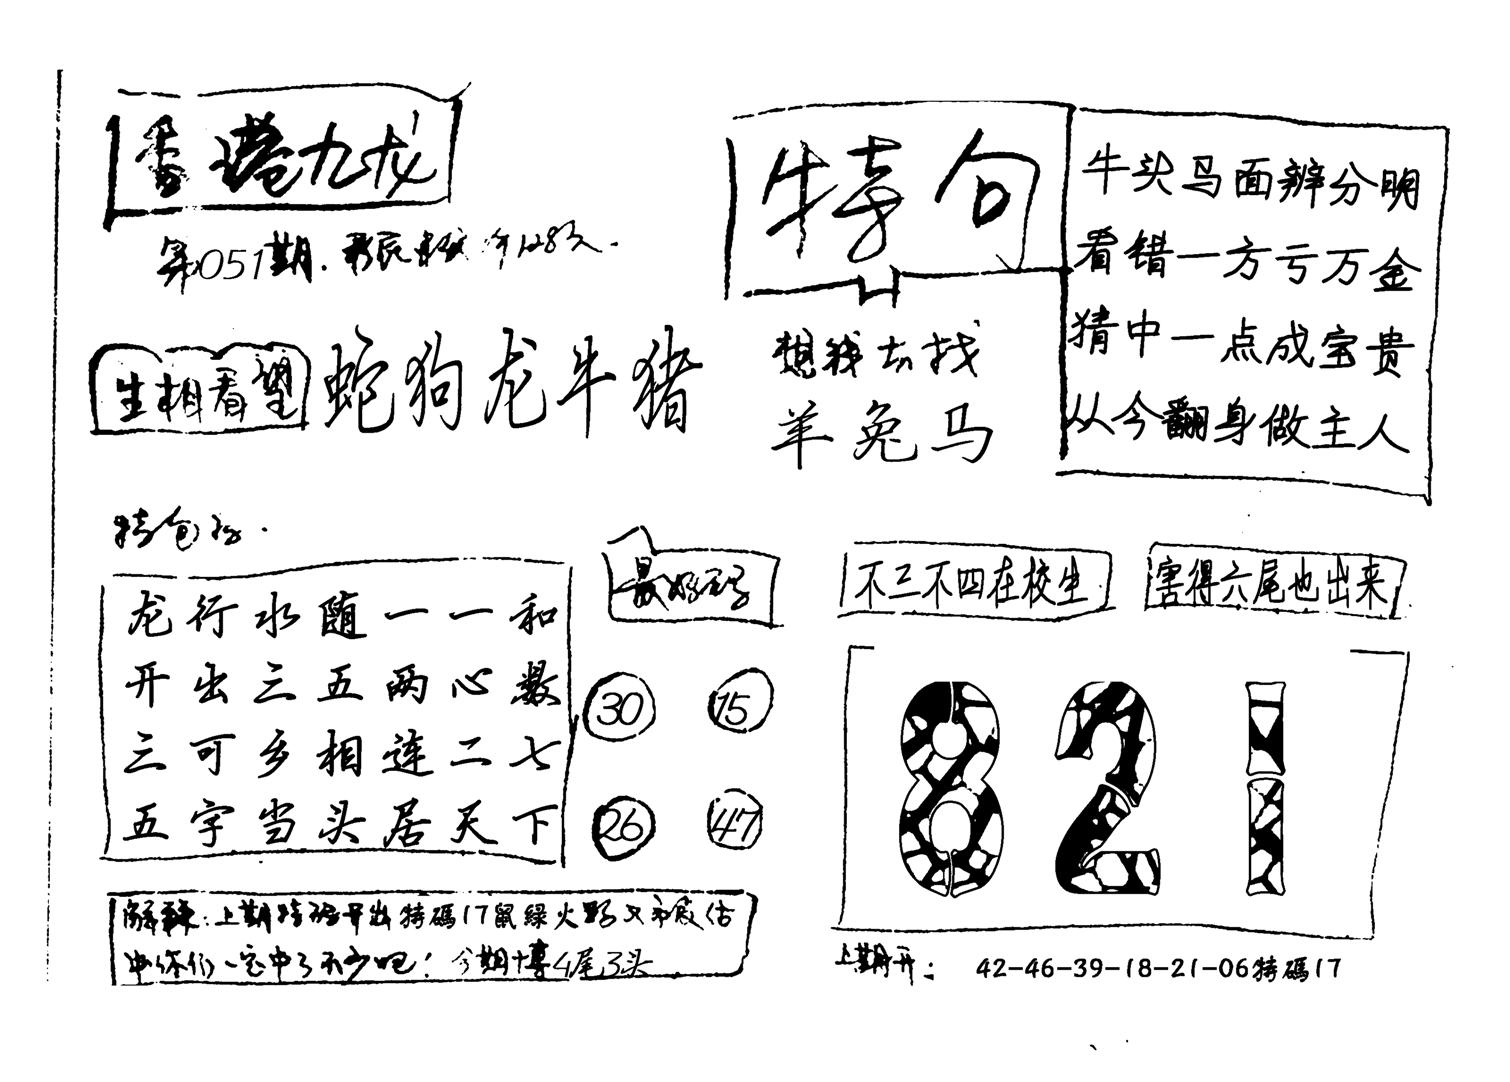 香港九龙
第051期.
特句
牛头马面辨分明
看错一方亏万金
猜中一点成宝贵
从今翻身做主人
生相看望
蛇狗龙牛猪
想钱去找
羊兔马
龙行水随一一和
开出三五两心数
三可乡相连二七
五字当头居天下
最好码
30 15
26 47
不三不四在校生
害得六尾也出来
821
解释:上期特码开出特碼17鼠緑火
你们一定中了不少吧!今期博4尾3头
上期开:
42-46-39-18-21-06特碼17